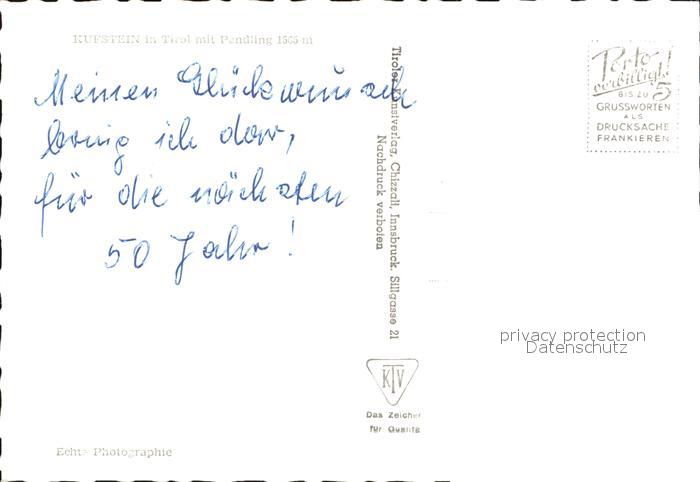 KUFSTEIN in Tirol mit Pendling 1565 m
Meinen Glückwunsch
bring ich dar,
für die nächsten
50 Jahr!
Tiroler Kunstverlag, Chizzali, Innsbruck, Sillgasse 21
Nachdruck verboten
Porto
verbilligt!
BIS ZU 5
GRUSSWORTEN
ALS
DRUCKSACHE
FRANKIEREN
privacy protection
Datenschutz
KTV
Das Zeichen
für Qualität
Echte Photographie